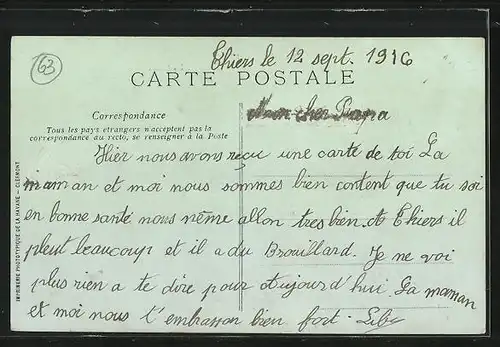 63
Thiers le 12 sept. 1916
CARTE POSTALE
Correspondance
Tous les pays étrangers n'acceptent pas la
correspondance au recto, se renseigner à la Poste
Mon cher Papa
Hier nous avons reçu une carte de toi La
maman et moi nous sommes bien content que tu soi
en bonne santé nous même allon tres bien. A Thiers il
pleut beaucoup et il a du Brouillard. Je ne voi
plus rien a te dire pour aujourd'hui. La maman
et moi nous t'embrasson bien fort.
IMPRIMERIE PHOTOTYPIQUE DE LA HAVANE — CLERMONT